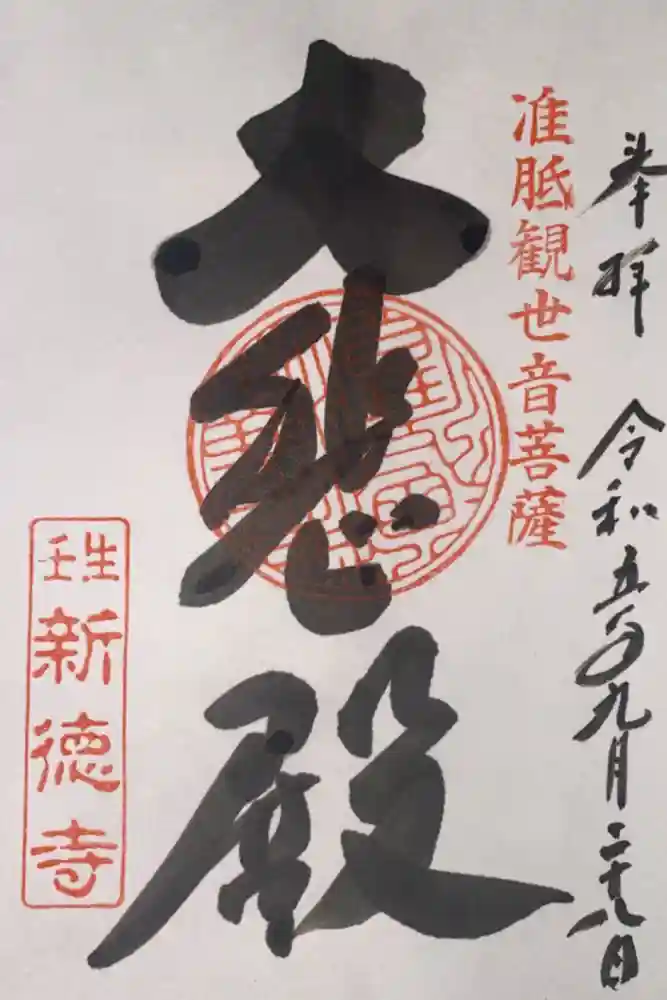 奉拝 令和五年九月二十八日
准胝観世音菩薩
大悲殿
壬生
新徳寺